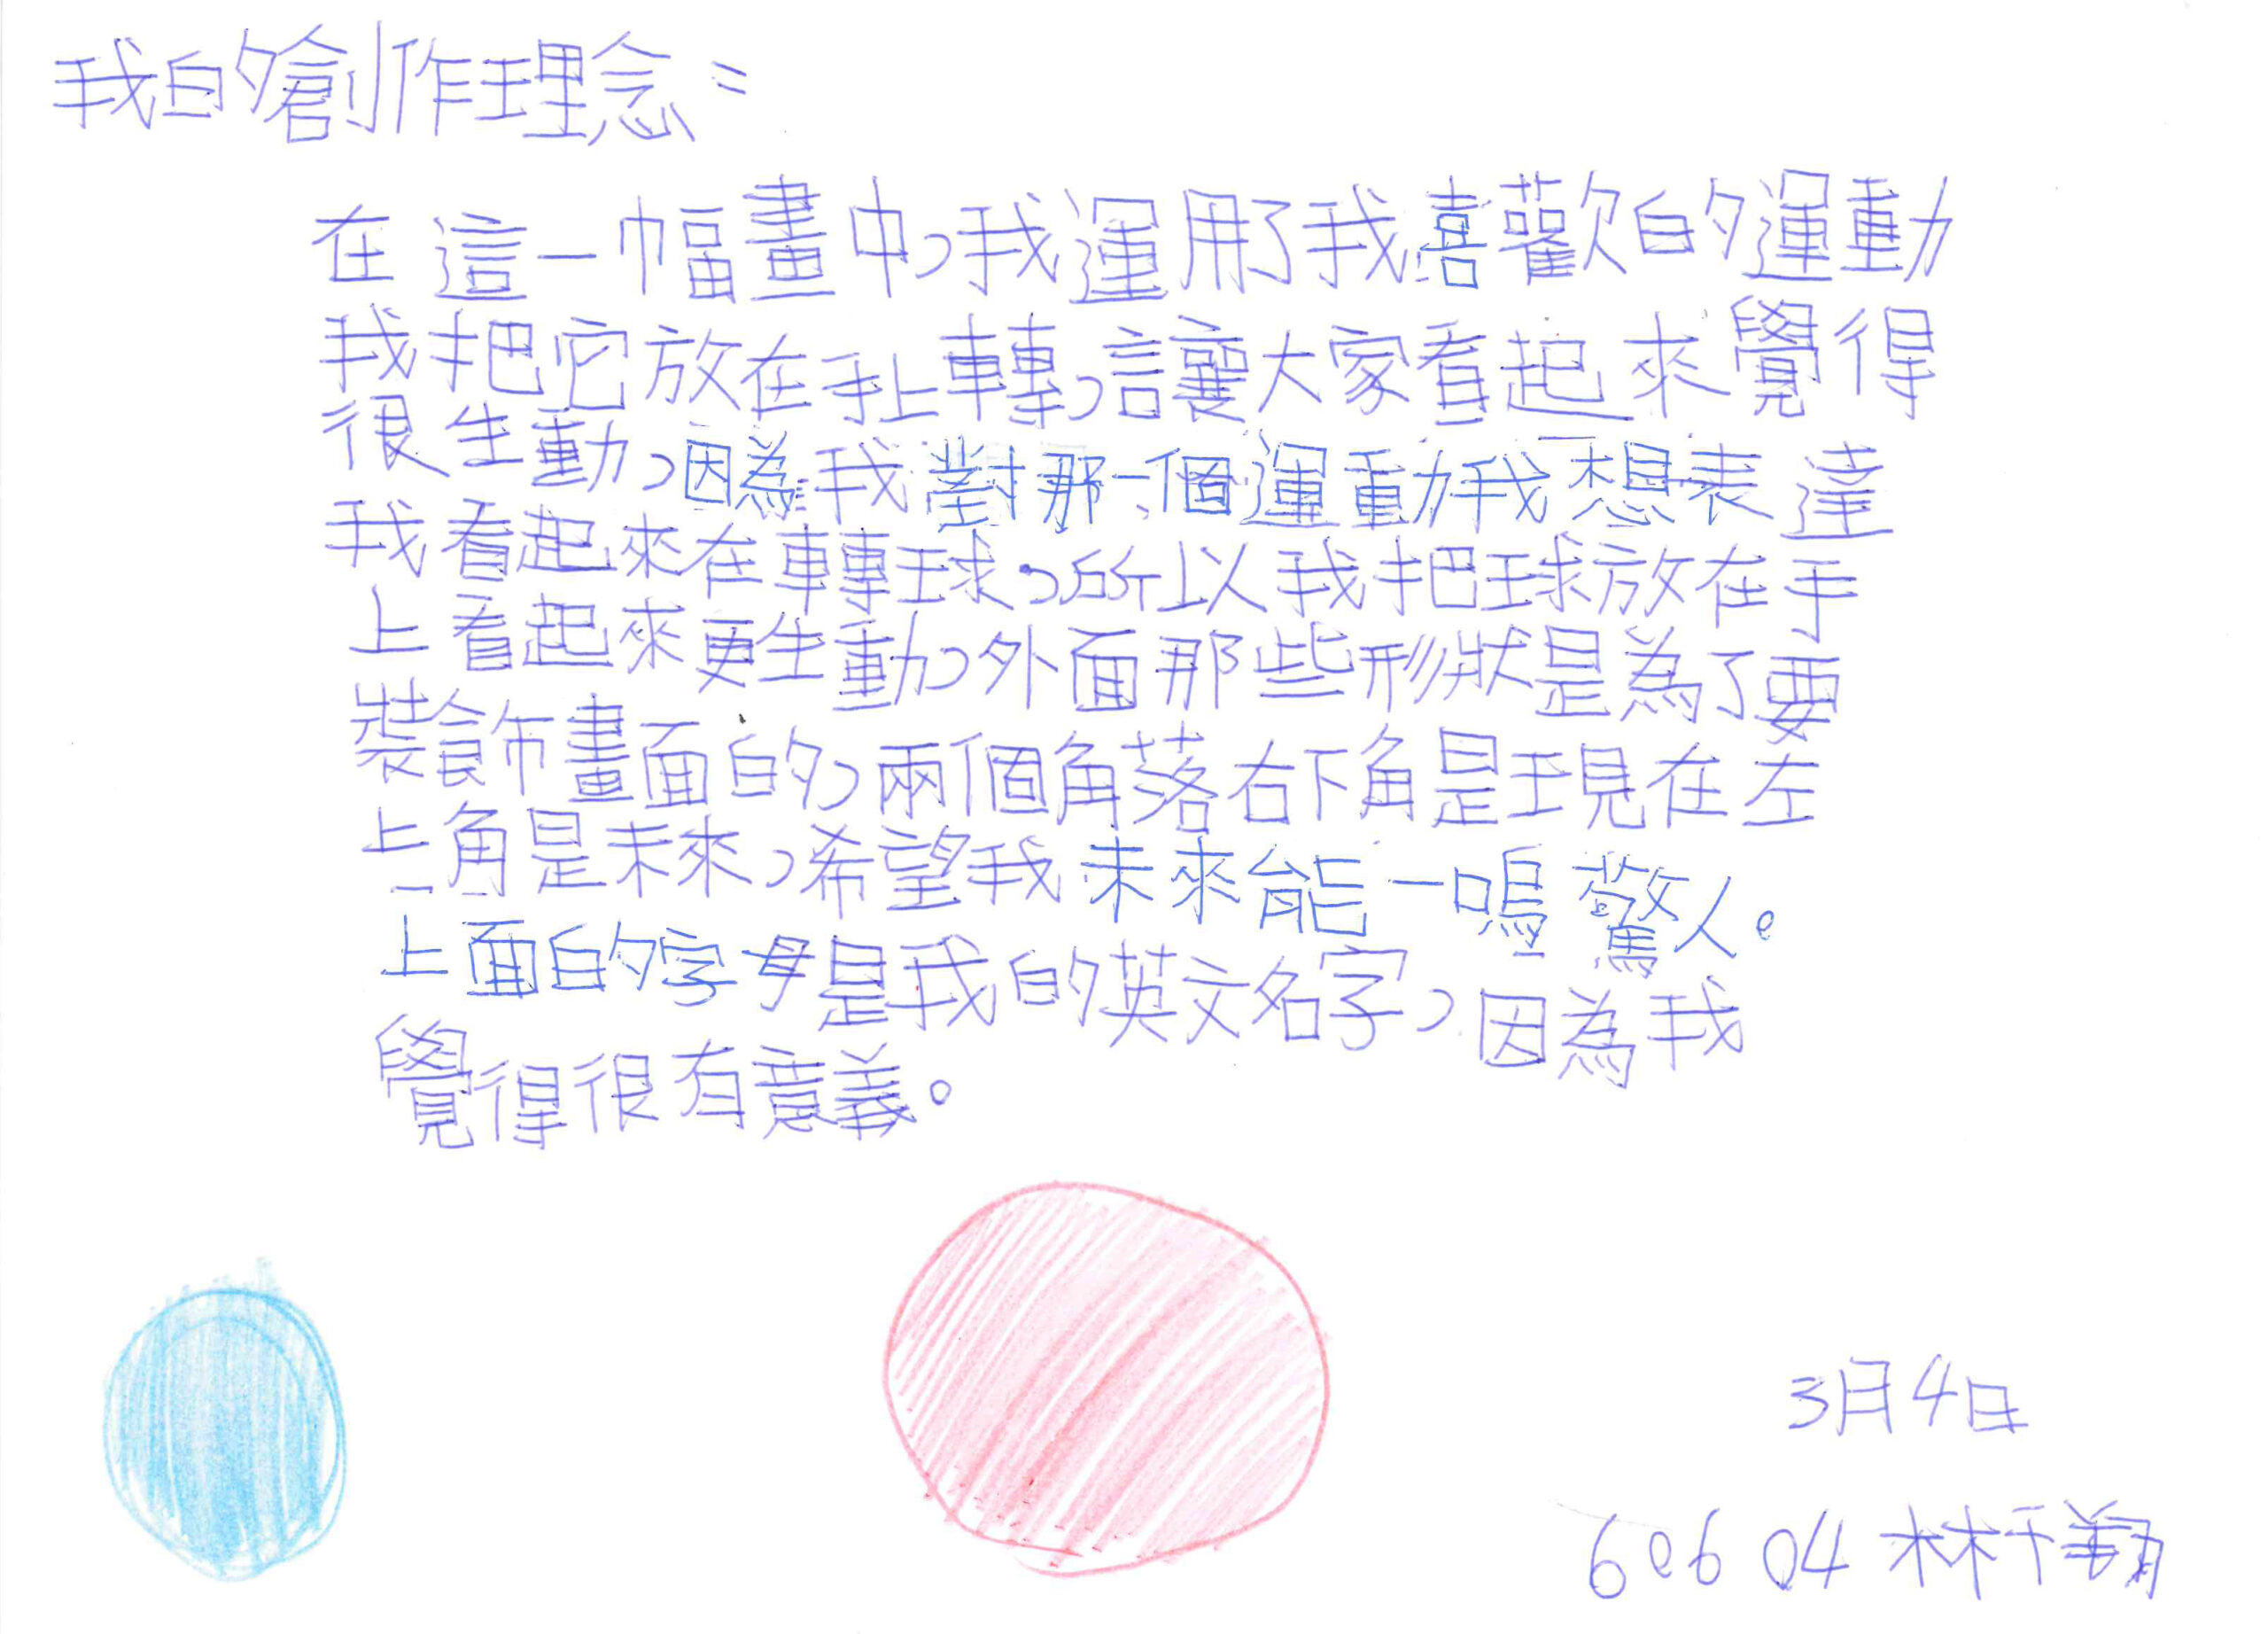 我的創作理念：
在這一幅畫中，我運用了我喜歡的運動
我把它放在手上轉，讓大家看起來覺得
很生動，因為我對那一個運動我想表達
我看起來在轉球，所以我把球放在手
上看起來更生動，外面那些形狀是為了要
裝飾畫面的，兩個角落右下角是現在左
上角是未來，希望我未來能一鳴驚人。
上面的字母是我的英文名字，因為我
覺得很有意義。
3月4日
606 04 林千翔